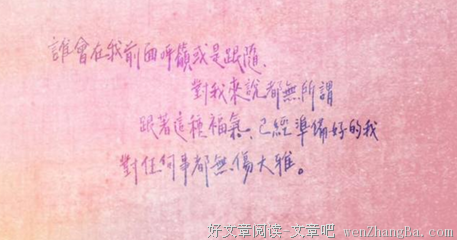 誰會在我前面呼籲或是跟隨,
對我來說都無所謂
跟著這種福氣、已經準備好的我
對任何事都無傷大雅。
好文章阅读-文章吧 wenZhangBa.com